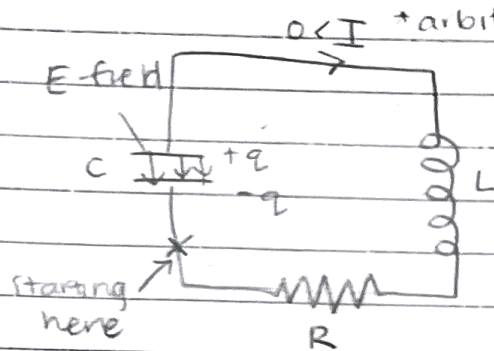 0 < I *arbit
E-field
C
+q
-q
L
starting
here
R